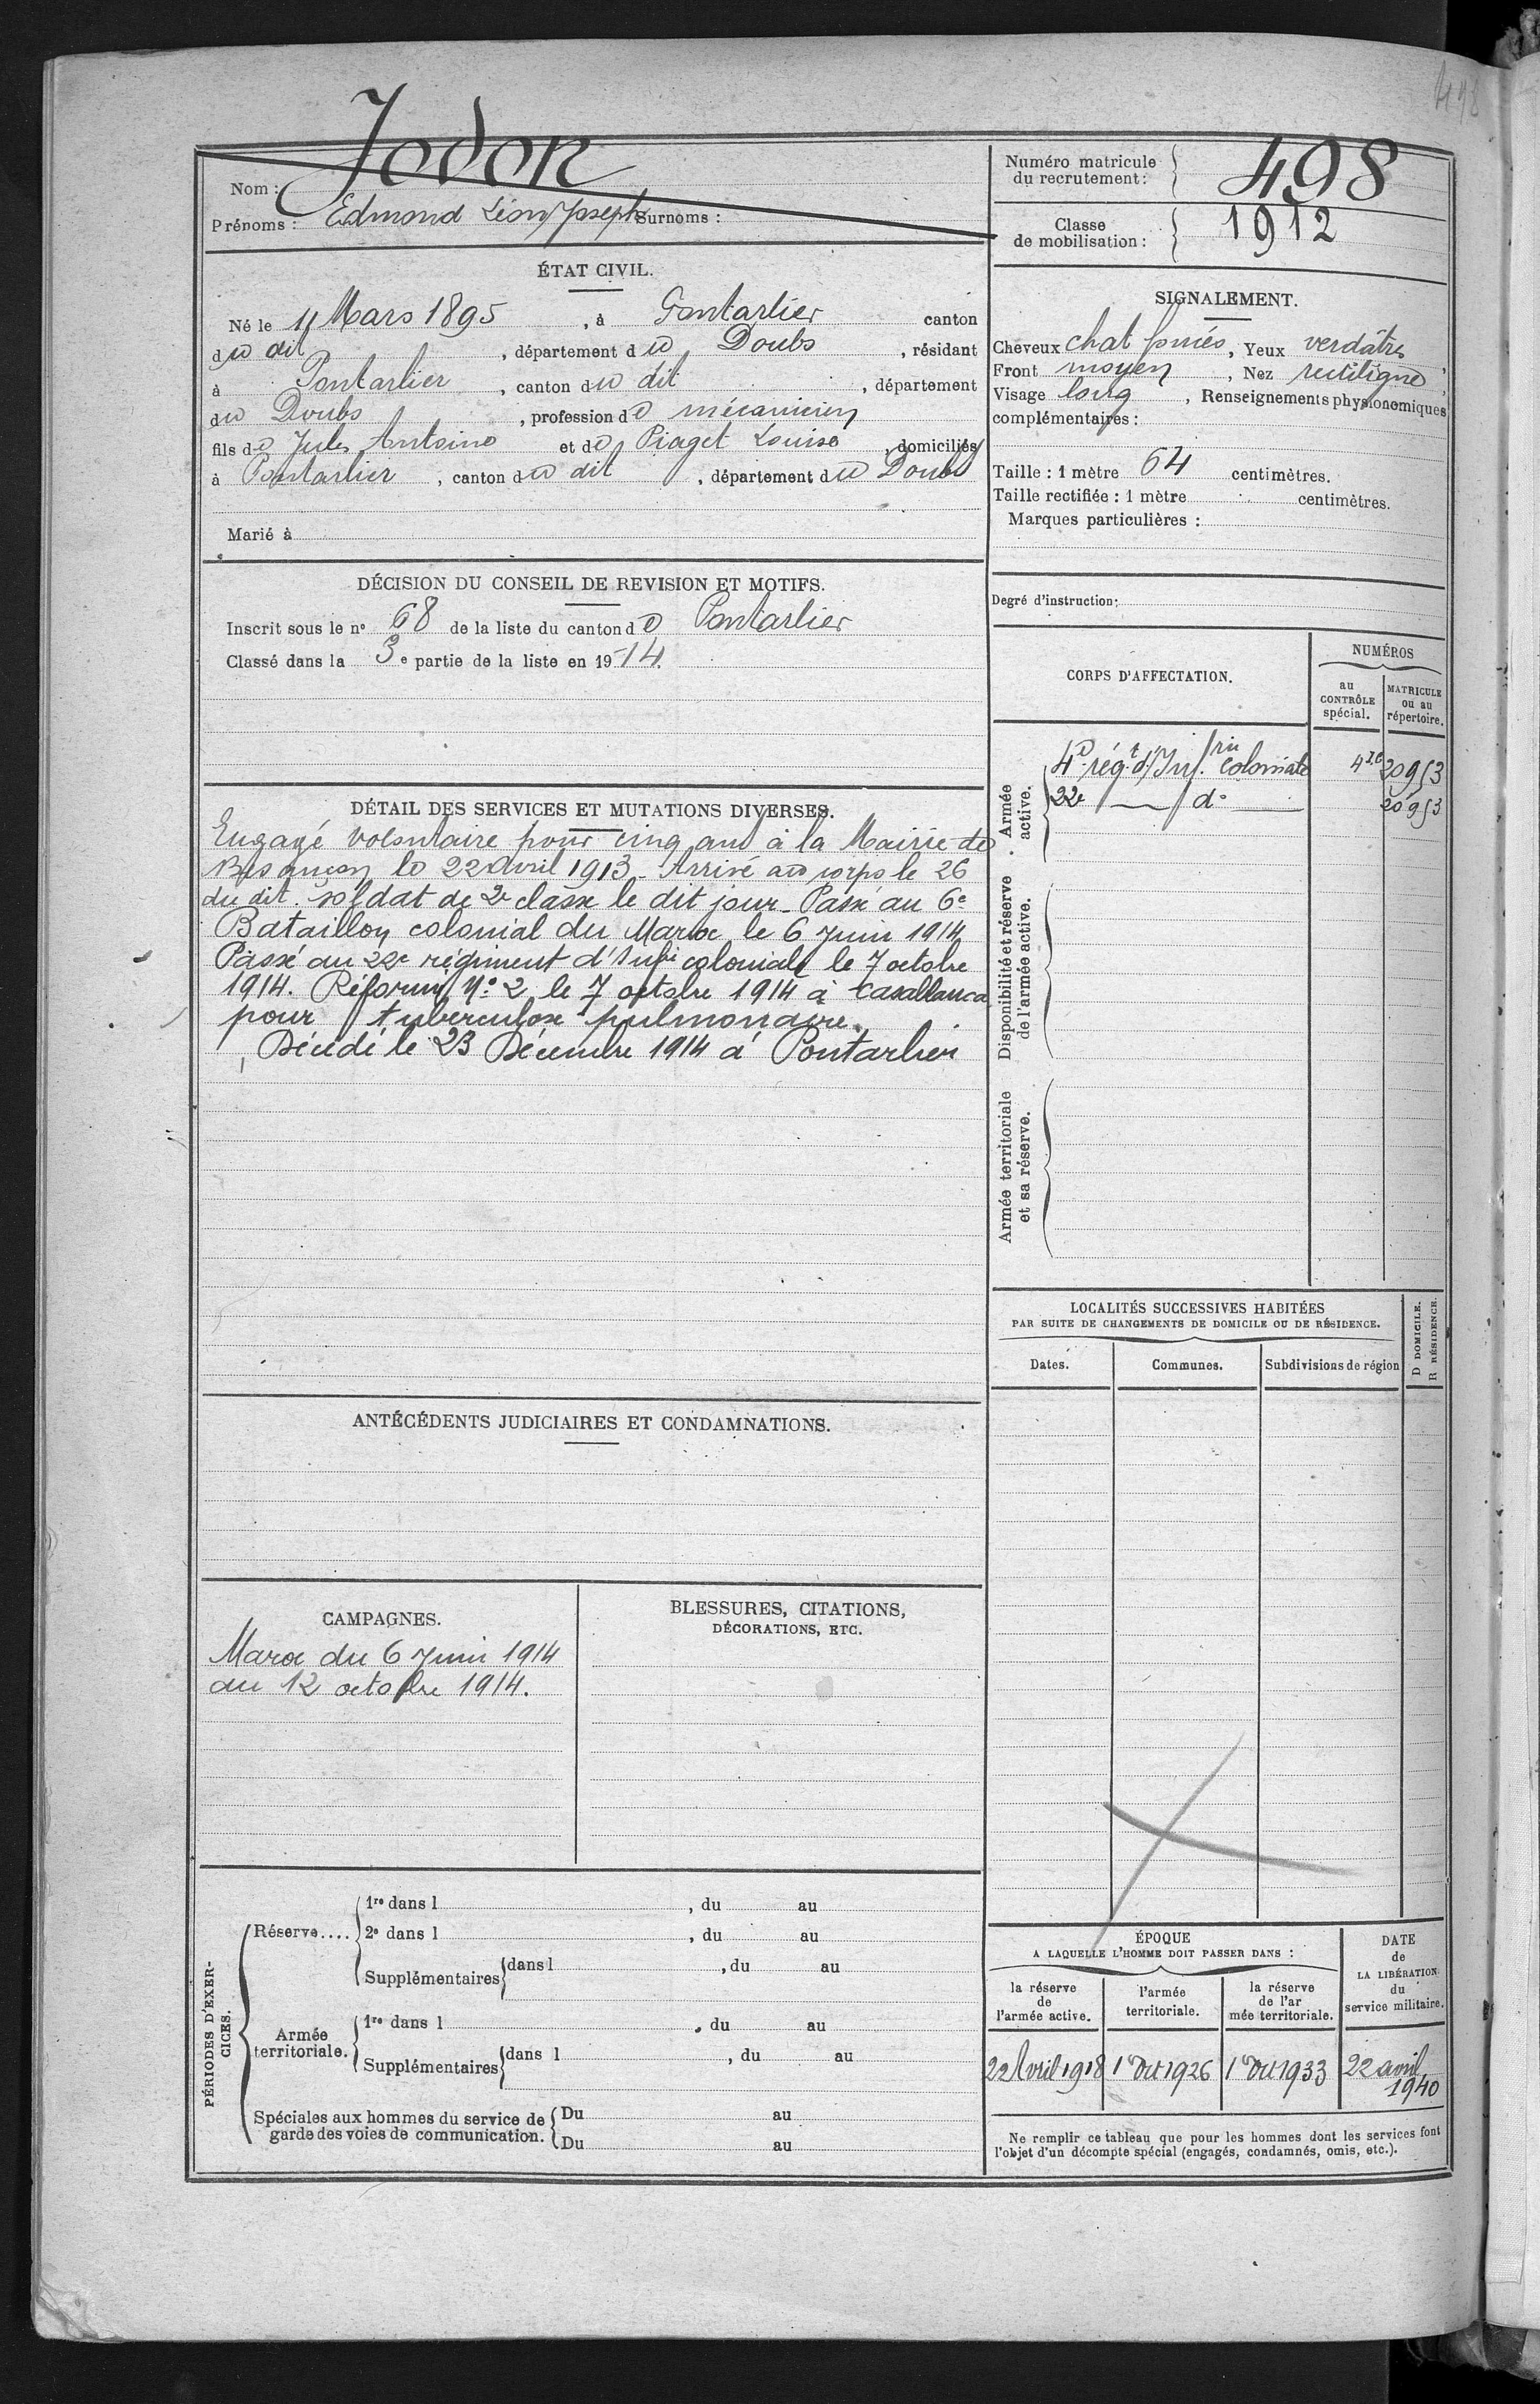 498
Nom : Jodon
Prénoms : Edmond Léon Joseph Surnoms :
Numéro matricule du recrutement : 498
Classe de mobilisation : 1912
ÉTAT CIVIL.
Né le 11 Mars 1895, à Pontarlier canton
du dit, département du Doubs, résidant
à Pontarlier, canton du dit, département
du Doubs, profession de mécanicien
fils de Jules Antoine et de Piaget Louise, domiciliés
à Pontarlier, canton du dit, département du Doubs
Marié à
SIGNALEMENT.
Cheveux chat foncés, Yeux verdâtres
Front moyen, Nez rectiligne,
Visage long, Renseignements physionomiques
complémentaires :
Taille : 1 mètre 64 centimètres.
Taille rectifiée : 1 mètre centimètres.
Marques particulières :
Degré d'instruction:
DÉCISION DU CONSEIL DE REVISION ET MOTIFS.
Inscrit sous le n° 68 de la liste du canton de Pontarlier
Classé dans la 3e partie de la liste en 1914.
DÉTAIL DES SERVICES ET MUTATIONS DIVERSES.
Engagé volontaire pour cinq ans à la Mairie de
Besançon le 22 Avril 1913 - Arrivé au corps le 26
du dit. soldat de 2e classe le dit jour - Passé au 6e
Bataillon colonial du Maroc le 6 Juin 1914
Passé au 22e régiment d'Infie coloniale le 7 octobre
1914. Réformé N° 2 le 7 octobre 1914 à Casablanca
pour tuberculose pulmonaire.
Décédé le 23 Décembre 1914 à Pontarlier
CORPS D'AFFECTATION.
NUMÉROS
au CONTRÔLE spécial.
MATRICULE ou au répertoire.
Armée active.
4e régt d'Inf.rie coloniale 20953
22e d° 20953
Disponibilité et réserve de l'armée active.
Armée territoriale et sa réserve.
LOCALITÉS SUCCESSIVES HABITÉES
PAR SUITE DE CHANGEMENTS DE DOMICILE OU DE RÉSIDENCE.
Dates. Communes. Subdivisions de région
D DOMICILE.
R RÉSIDENCE.
ANTÉCÉDENTS JUDICIAIRES ET CONDAMNATIONS.
CAMPAGNES.
Maroc du 6 Juin 1914
au 12 octobre 1914.
BLESSURES, CITATIONS,
DÉCORATIONS, ETC.
PÉRIODES D'EXERCICES.
Réserve....
1re dans l , du au
2e dans l , du au
Supplémentaires dans l , du au
Armée territoriale.
1re dans l , du au
Supplémentaires dans l , du au
Spéciales aux hommes du service de garde des voies de communication.
Du au
Du au
ÉPOQUE
A LAQUELLE L'HOMME DOIT PASSER DANS :
la réserve de l'armée active.
l'armée territoriale.
la réserve de l'ar mée territoriale.
DATE de LA LIBÉRATION du service militaire.
22 Avril 1918
1er Oct 1926
1er Oct 1933
22 avril 1940
Ne remplir ce tableau que pour les hommes dont les services font
l'objet d'un décompte spécial (engagés, condamnés, omis, etc.).